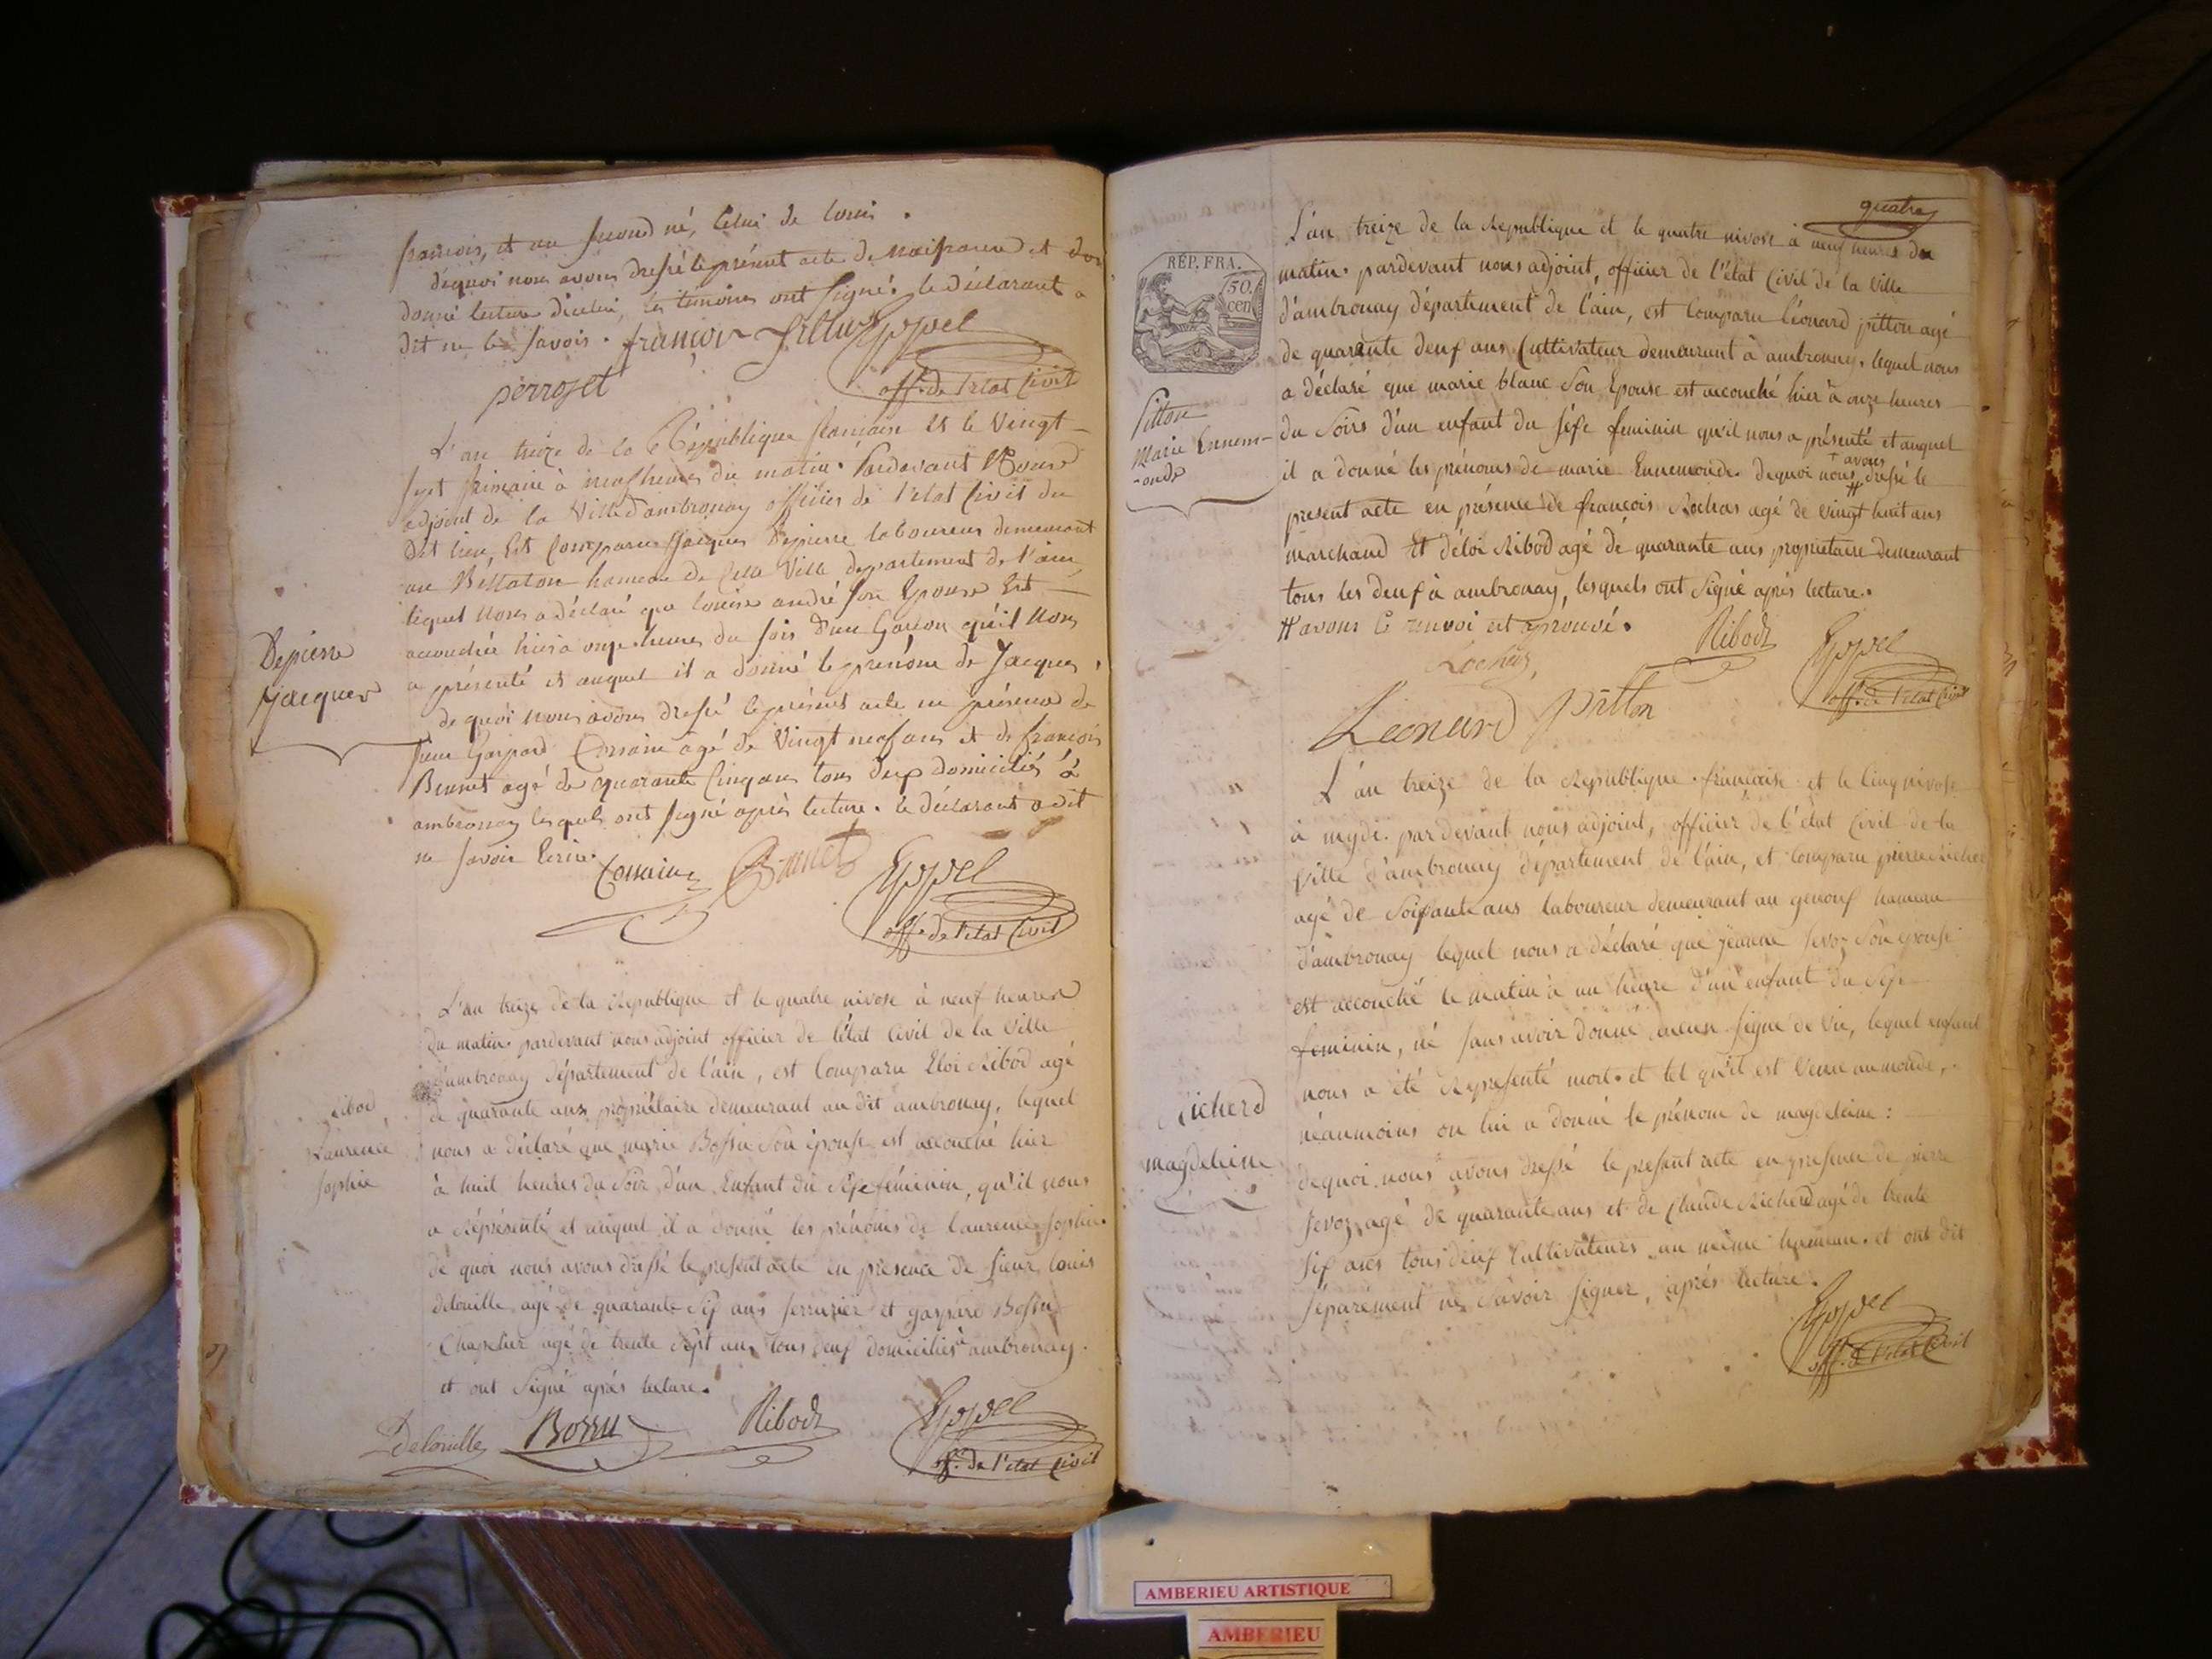 françois, et au second né, Celui de louis.
dequoi nous avons dressé le présent acte de Naissance et
donné lecture d'icelui, les témoins ont signé. le déclarant a
dit ne le savoir. françois Eppel
perrozet off. de l'etat Civil
L'an treize de la République francaise et le Vingt
sept frimaire à neuf heures du matin. Pardevant Nous
adjoint de la Ville d'ambronay officier de l'etat Civil du
Dit lieu, Est Comparu Jacques Depierre laboureur demeurant
au Bettaton hameau de Cette Ville departement de l'ain,
lequel Nous a déclaré que louise andré son Epouse Est
accouchée hier a onze heures du soir d'un Garcon qu'il Nous
a présenté et auquel il a donné le prénom de Jacques,
de quoi nous avons dressé le présent acte en présence de
Gaspard Cossain âgé de Vingt neuf ans et de francois
Bennet agé de quarante Cinq ans tous deux domiciliés à
ambronay lesquels ont signé après lecture. le déclarant a dit
ne savoir Ecrire.
Cossain Eppel
off. de l'etat Civil
Depierre
Jacques
L'an treize de la République et le quatre nivose à neuf heures
du matin. pardevant nous adjoint officier de l'état Civil de la Ville
d'ambronay département de l'ain, est Comparu Eloi Ribod agé
de quarante ans propriétaire demeurant au dit ambronay, lequel
nous a déclaré que marie Bossu Son épouse est accouché hier
à huit heures du Soir d'un Enfant du Sexe féminin, qu'il nous
a Réprésenté et auquel il a donné les prénoms de laurence Sophie.
de quoi nous avons dressé le present acte en présence de sieur louis
delouille agé de quarante Six ans serrurier et gaspard Bossu
Chapelier agé de trente Sept ans tous deux domiciliés à ambronay.
et ont Signé après lecture.
Delouille Bossu Ribod Eppel
off. de l'etat Civil
Ribod
Laurence
Sophie
quatre
L'an treize de la Republique et le quatre nivose à neuf heures du
matin. pardevant nous adjoint, officier de l'état Civil de la Ville
d'ambronay département de l'ain, est Comparu léonard pitton agé
de quarante deux ans Cultivateur demeurant à ambronay. lequel nous
a déclaré que marie blanc Son Epouse est accouché hier à onze heures
du Soirs d'un enfant du sexe feminin qu'il nous a présenté et auquel
il a donné les prénoms de marie Ennemonde. dequoi nous avons dressé le
present acte en présence de francois Rochas agé de vingt huit ans
marchand Et d'éloi Ribod agé de quarante ans propriétaire demeurant
tous les deux à ambronay, lesquels ont Signé après lecture.
avons le renvoi est aprouvé.
Rochas Ribod Eppel
Leonard pitton off. de l'etat Civil
RÉP. FRA.
50.
cen
Pitton
Marie Ennem-
-onde
L'an treize de la République francaise et le Cinq nivose
à mydi. pardevant nous adjoint, officier de l'état Civil de la
Ville d'ambronay département de l'ain, et Comparu pierre Richerd
agé de Soixante ans laboureur demeurant au genouf hameau
d'ambronay lequel nous a déclaré que jeanne Sevoz Son épouse
est accouché le matin à un heure d'un enfant du Sexe
feminin, né sans avoir donné aucun signe de Vie, lequel enfant
nous a été Representé mort. et tel qu'il est Venu au monde,
néaumoins on lui a donné le prénom de magdeleine:
dequoi nous avons dressé le present acte en presence de pierre
Sevoz agé de quarante ans et de Claude Richerd agé de trente
six ans tous deux Cultivateurs au même hameau. et ont dit
séparément ne Savoir signer, après lecture.
Eppel
off. de l'etat Civil
Richerd
magdeleine
AMBERIEU ARTISTIQUE
AMBERIEU